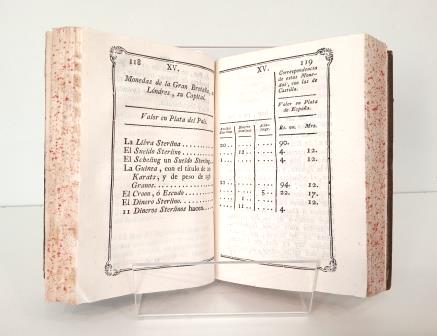 118
XV.
Monedas de la Gran Bretaña,
Londres, su Capital.
Valor en Plata del País.
La Libra Sterlina
El Sueldo Sterlino
El Scheling un Sueldo Sterling
La Guinea, con el título de
Karats, y de peso de
Granos.
El Crown, ó Escudo
El Dinero Sterlino.
11 Dineros Sterlinos hacen
XV.
119
Correspondencia
de estas Mone-
das, con las de
Castilla.
Valor en Plata
de España.
Rs. vn. Mrs.
20. 90.
12. 4. 12.
1. 4. 12.
21. 94. 12.
5. 22. 17.
1. 12.
11. 4.